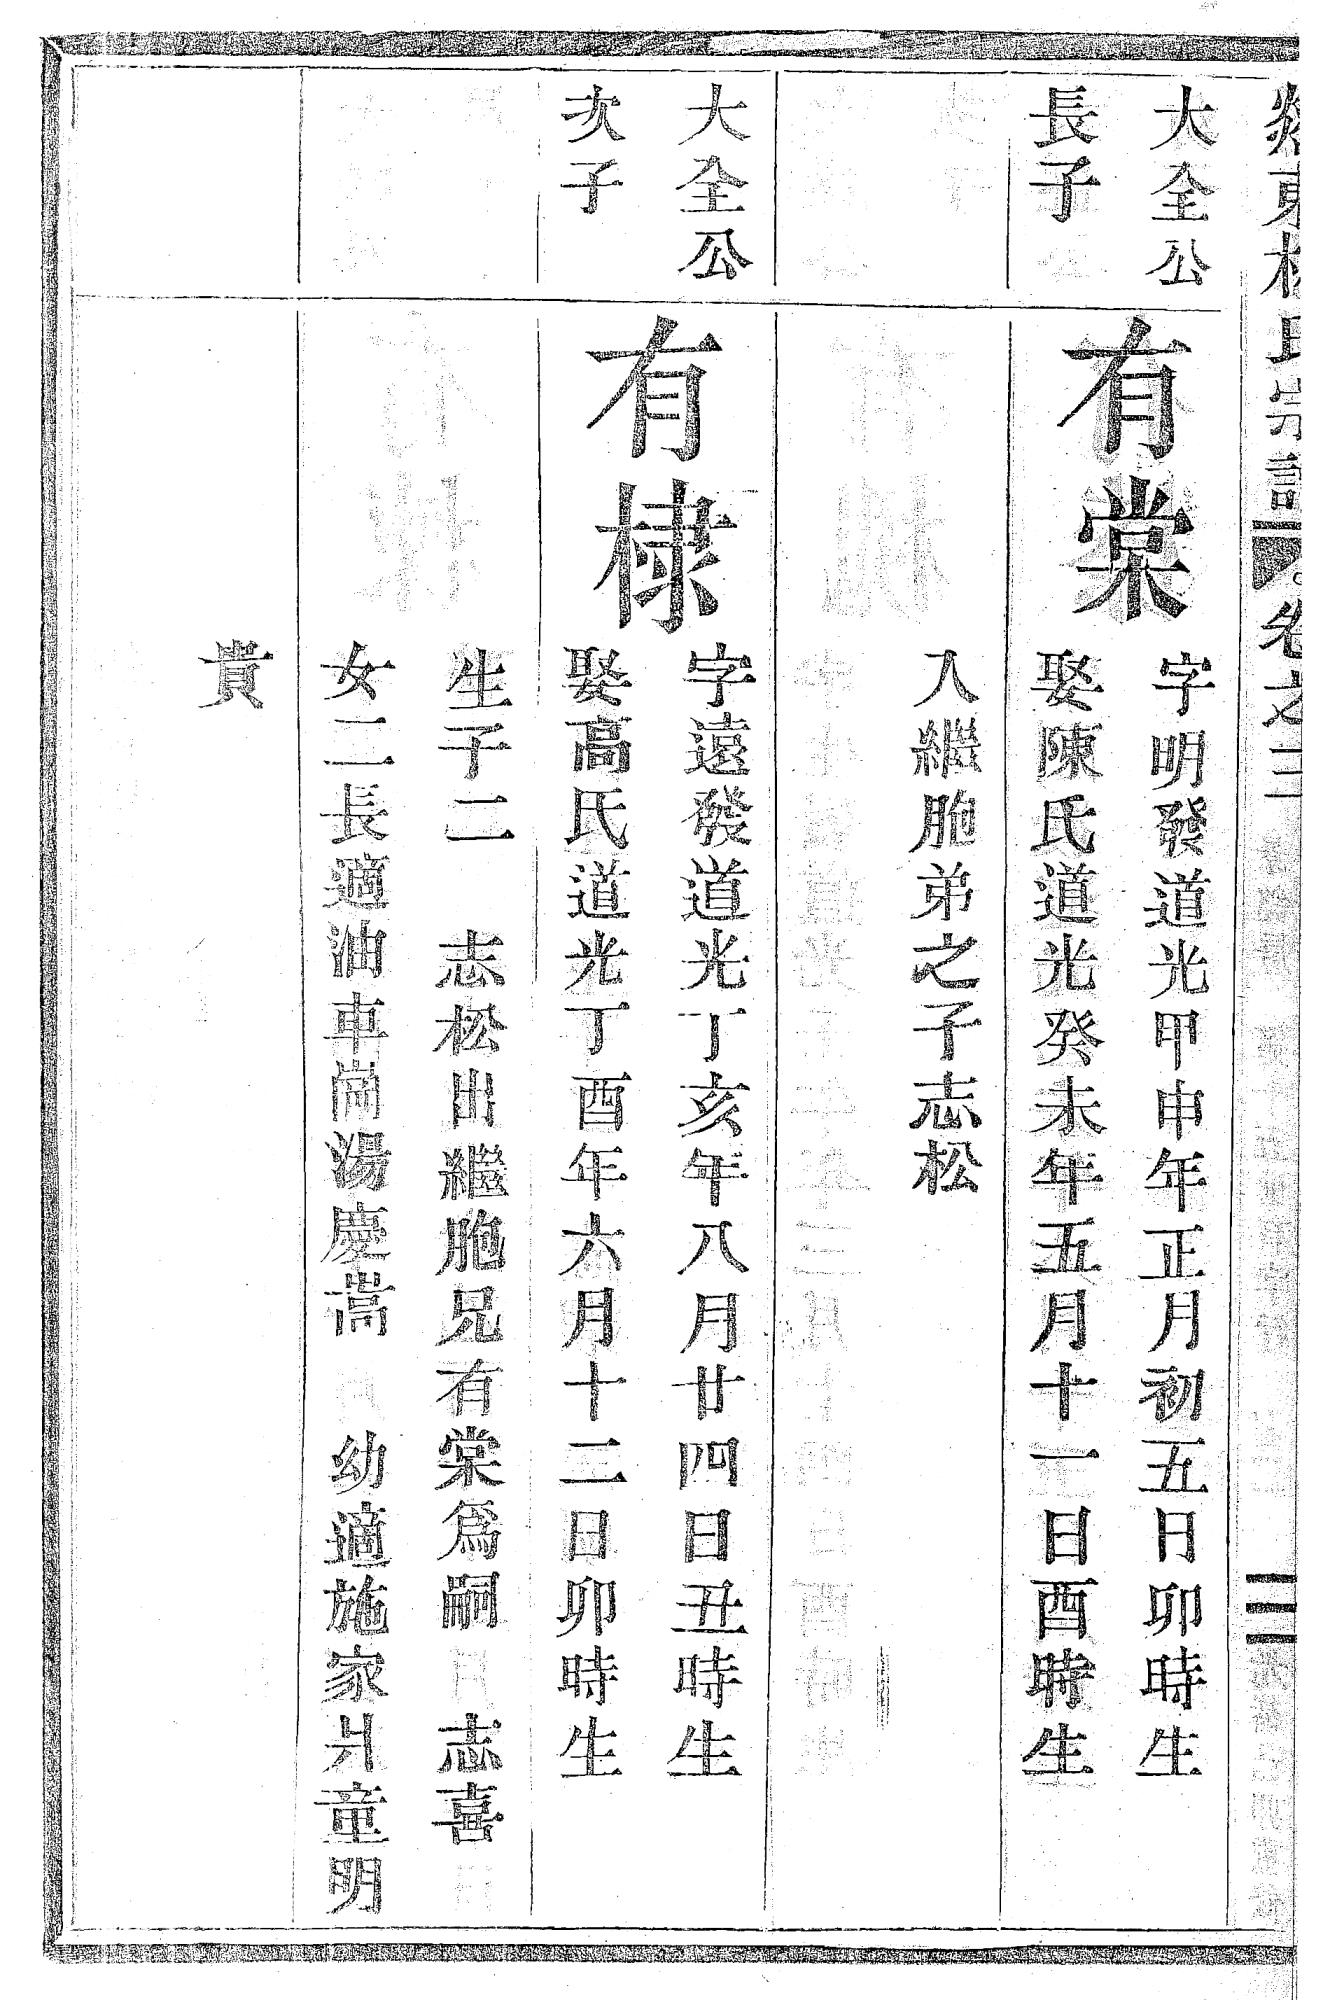 東林氏宗譜
卷之二
三
大全公
長子
有棠
字明發道光甲申年正月初五日卯時生
娶陳氏道光癸未年五月十一日酉時生
入繼胞弟之子志松
大全公
次子
有棣
字遠發道光丁亥年八月廿四日丑時生
娶高氏道光丁酉年六月十二日卯時生
生子二 志松出繼胞兄有棠爲嗣 志喜
女二長適油車崗湯慶嵩 幼適施家爿童明
貴